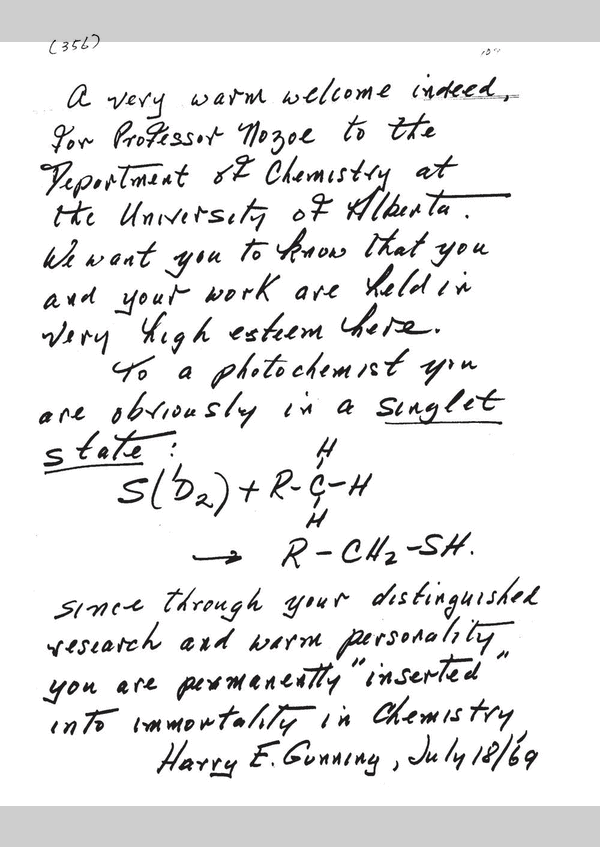 (356)
A very warm welcome indeed,
for Professor Nozoe to the
Department of Chemistry at
the University of Alberta.
We want you to know that you
and your work are held in
very high esteem here.
To a photochemist you
are obviously in a singlet
state:
H
S(¹D₂) + R-C-H
H
→ R-CH₂-SH.
since through your distinguished
research and warm personality
you are permanently "inserted"
into immortality in Chemistry,
Harry E. Gunning, July 18/69